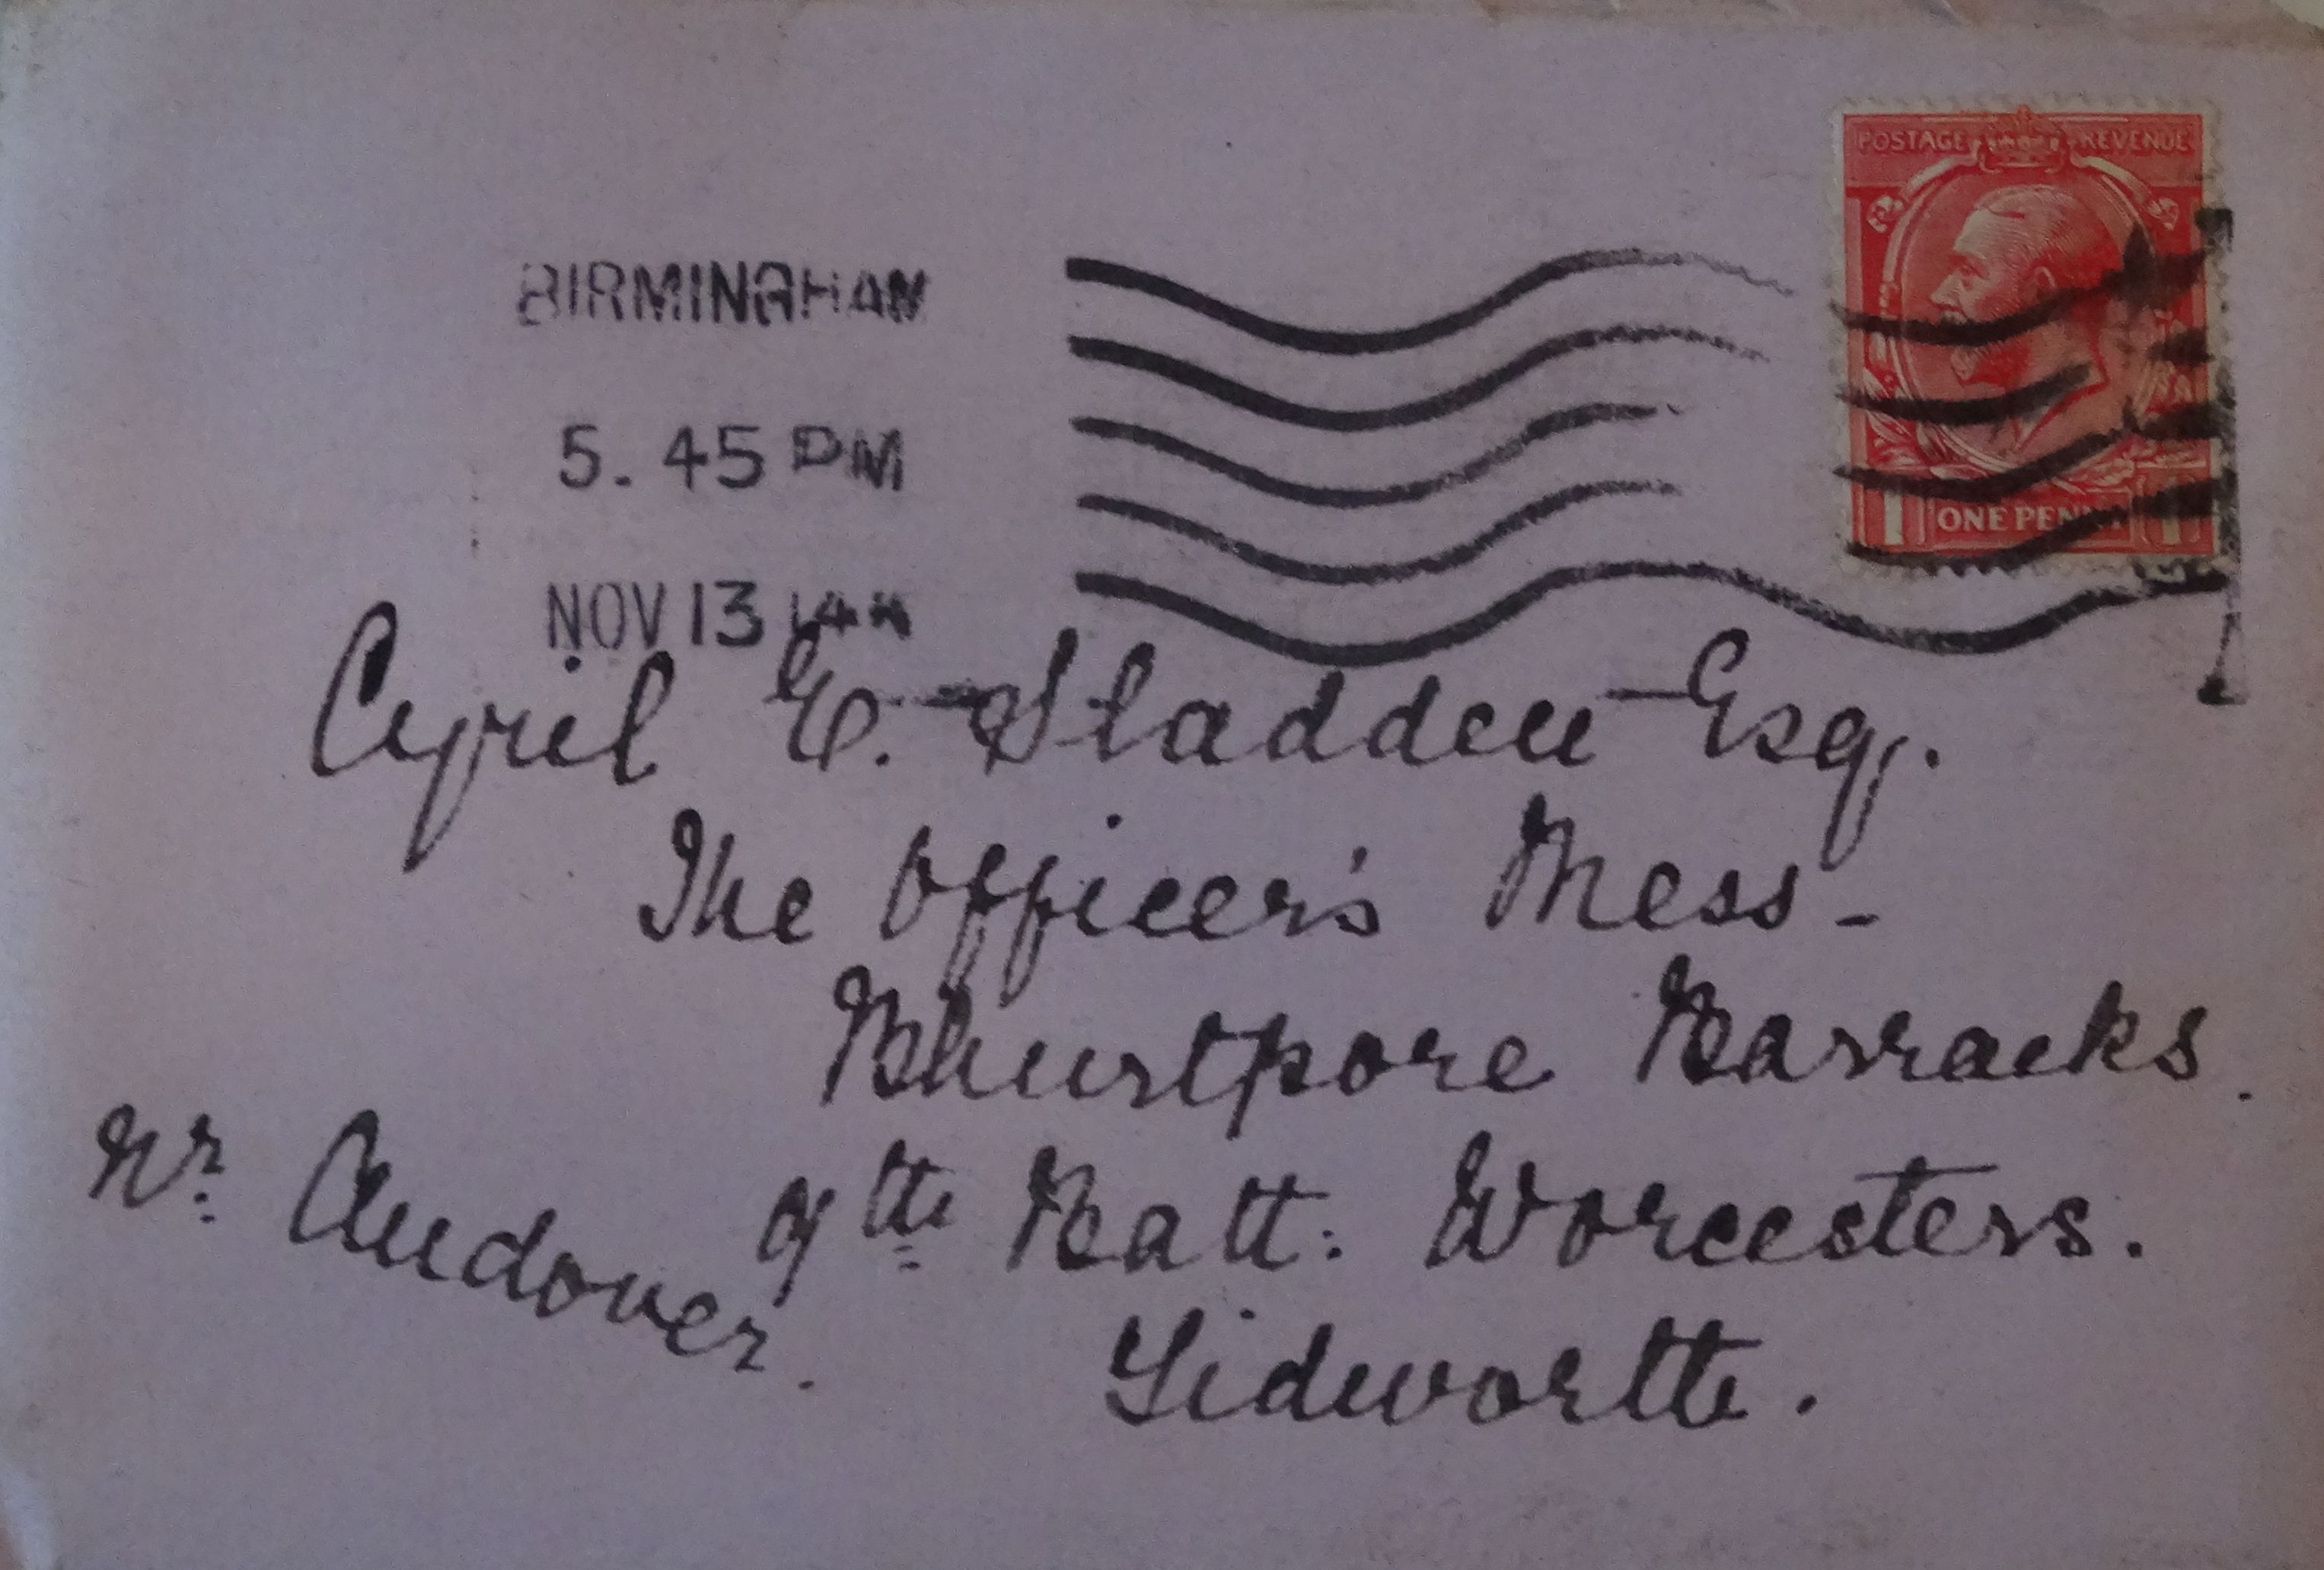 POSTAGE REVENUE
ONE PENNY
BIRMINGHAM
5. 45 PM
NOV 13 14
Cyril E. Sladden Esq.
The Officer's Mess -
Bhurtpore Barracks.
9th Batt: Worcesters.
Tidworth.
Nr. Andover.